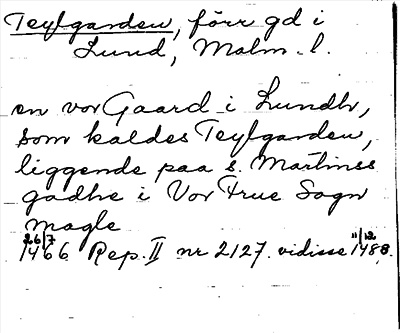 Teylgarden, förr gd i
Lund, Malm. l.
en vor Gaard i Lundh,
som kaldes Teylgarden,
liggende paa s. Martinss
gadhe i Vor Frue Sogn
magle
26/7 1466 Rep. II nr 2127. vidisse 11/12 1488.